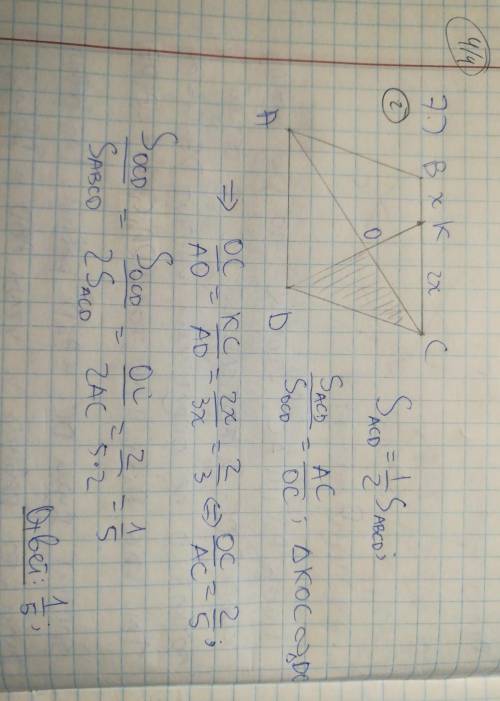 4/4
7.)
2
B x K 2x C
O
A D
S_ACD = 1/2 S_ABCD;
S_ACD/S_OCD = AC/OC; ΔKOC ∞
⇒ OC/AO = KC/AD = 2x/3x = 2/3 ⇔ OC/AC = 2/5;
S_OCD/S_ABCD = S_OCD/2S_ACD = OC/2AC = 2/5·2 = 1/5
Ответ: 1/5;